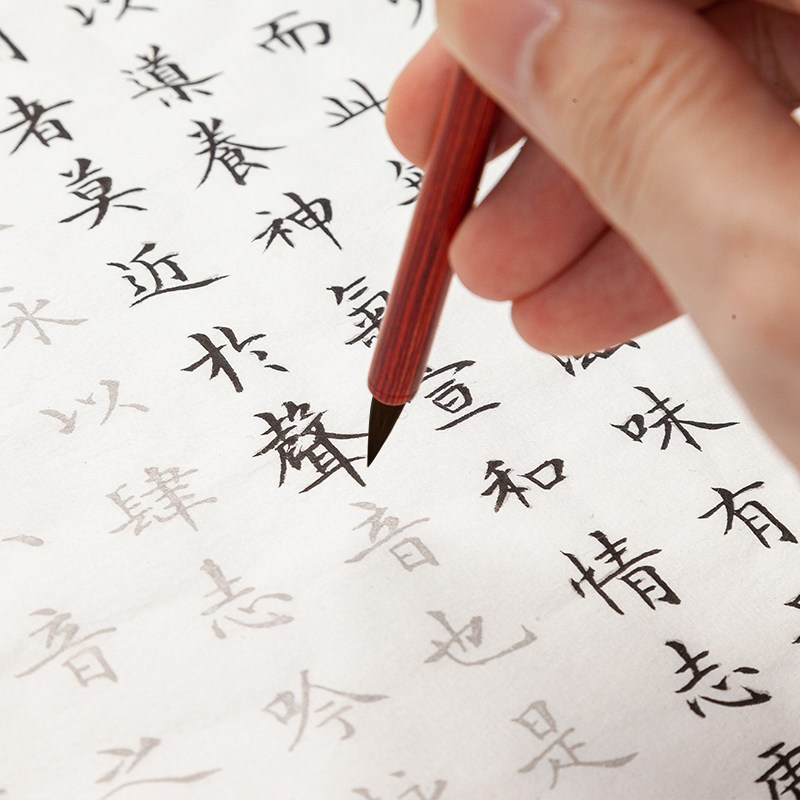 而此
味有
以導養神氣宣和情志
者莫近於聲音也是
永以肆志吟
音之